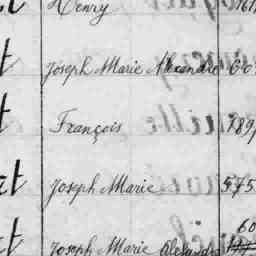 Henry
t Joseph Marie Alexandre
t François 789
at Joseph Marie 575
60
at Joseph Marie Alexandre